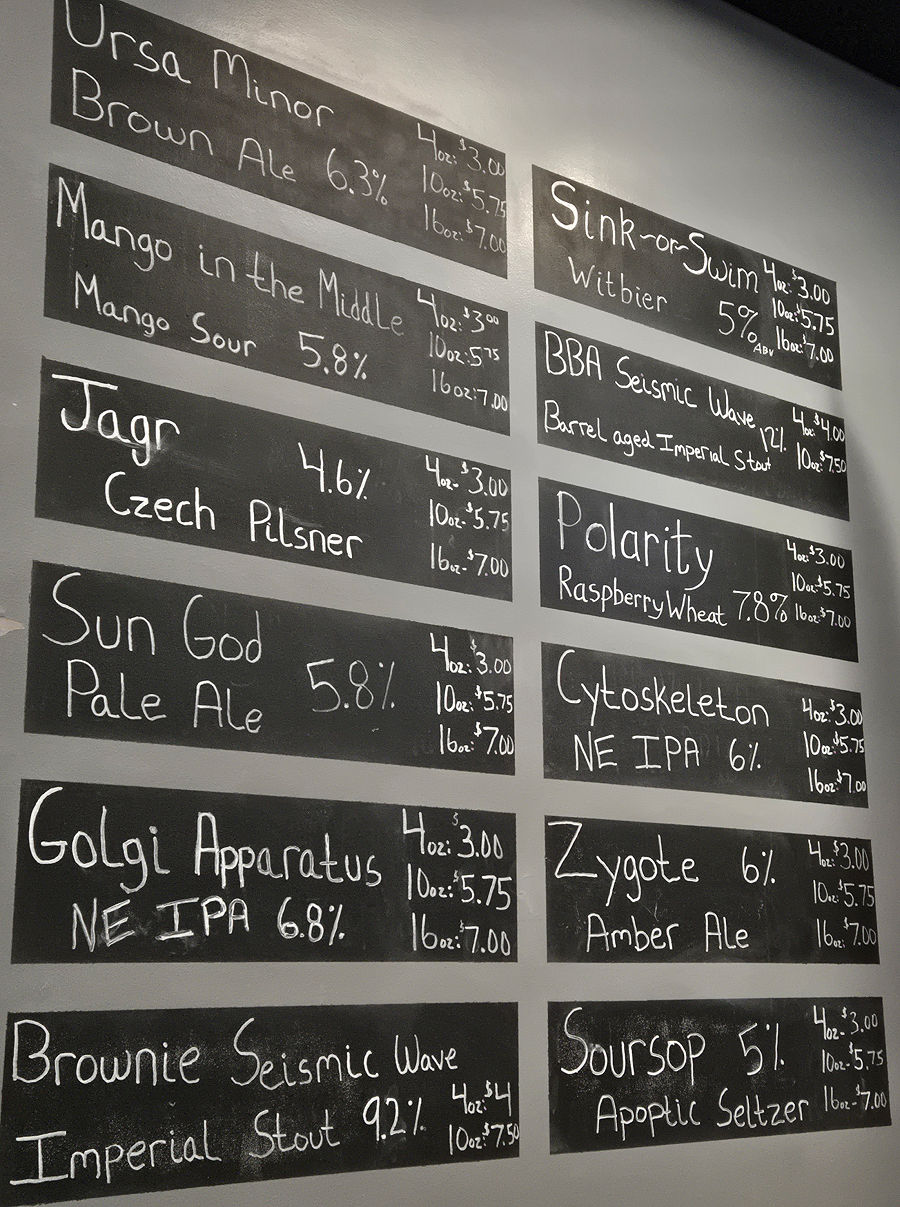 Ursa Minor
Brown Ale 6.3%
4oz: $3.00
10oz: $5.75
16oz: $7.00
Mango in the Middle
Mango Sour 5.8%
4oz: $3.00
10oz: 5.75
16oz: 7.00
Jagr
4.6%
Czech Pilsner
4oz- $3.00
10oz- $5.75
16oz- $7.00
Sun God
Pale Ale 5.8%
4oz: $3.00
10oz: $5.75
16oz: $7.00
Golgi Apparatus
NE IPA 6.8%
4oz: $3.00
10oz: $5.75
16oz: $7.00
Brownie Seismic Wave
Imperial Stout 9.2%
4oz: $4
10oz: $7.50
Sink-or-Swim
Witbier 5% ABV
4oz: $3.00
10oz: $5.75
16oz: $7.00
BBA Seismic Wave
Barrel aged Imperial Stout 12%
4oz: $4.00
10oz: $7.50
Polarity
Raspberry Wheat 7.8%
4oz: $3.00
10oz: $5.75
16oz: $7.00
Cytoskeleton
NE IPA 6%
4oz: $3.00
10oz: $5.75
16oz: $7.00
Zygote 6%
Amber Ale
4oz: $3.00
10oz: $5.75
16oz: $7.00
Soursop 5%
Apoptic Seltzer
4oz- $3.00
10oz- $5.75
16oz- $7.00